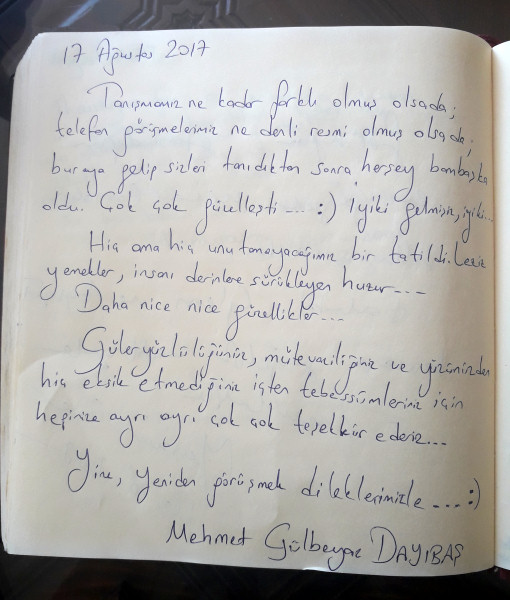 17 Ağustos 2017
Tanışmamız ne kadar farklı olmuş olsada;
telefon görüşmelerimiz ne denli resmi olmuş olsada;
buraya gelip sizleri tanıdıktan sonra herşey bambaşka
oldu. Çok çok güzelleşti... :) İyiki gelmişiz, iyiki...
Hiç ama hiç unutamayacağımız bir tatildi. Leziz
yemekler, insanı derinlere sürükleyen huzur....
Daha nice nice güzellikler...
Güleryüzlülüğünüz, mütevaciliğiniz ve yüzünüzden
hiç eksik etmediğiniz içten tebessümleriniz için
hepinize ayrı ayrı çok çok teşekkür ederiz...
Yine, yeniden görüşmek dileklerimizle ...:)
Mehmet Gülbeyaz DAYIBAŞ